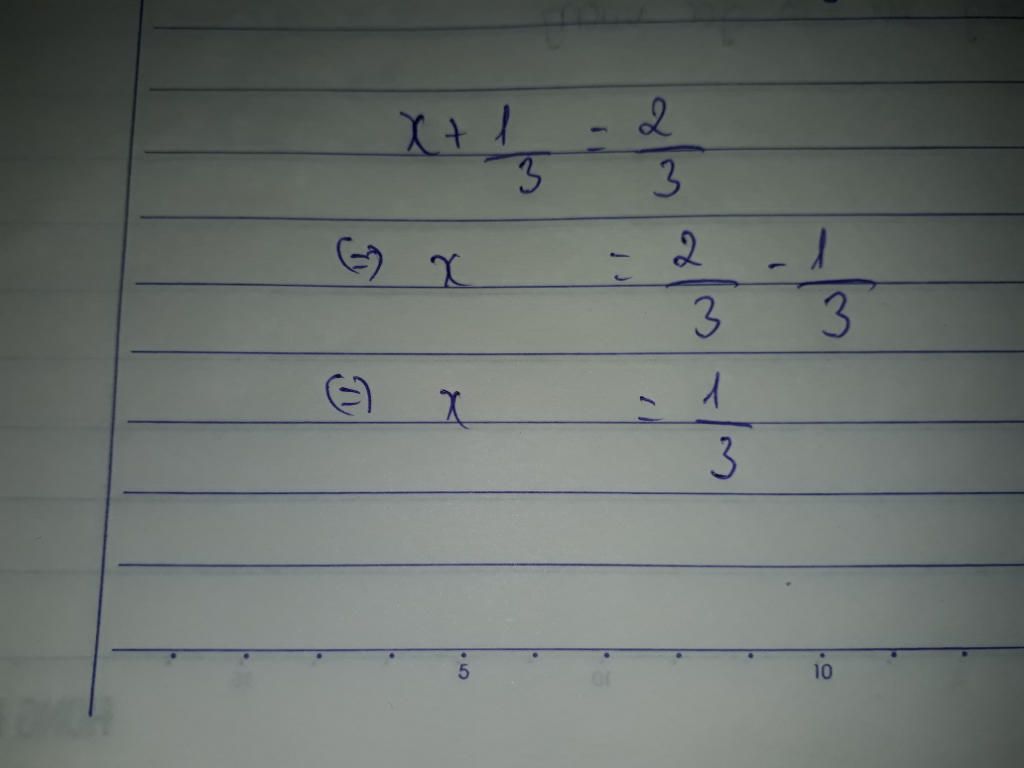 x + 1/3 = 2/3
(=) x = 2/3 - 1/3
(=) x = 1/3
5 10